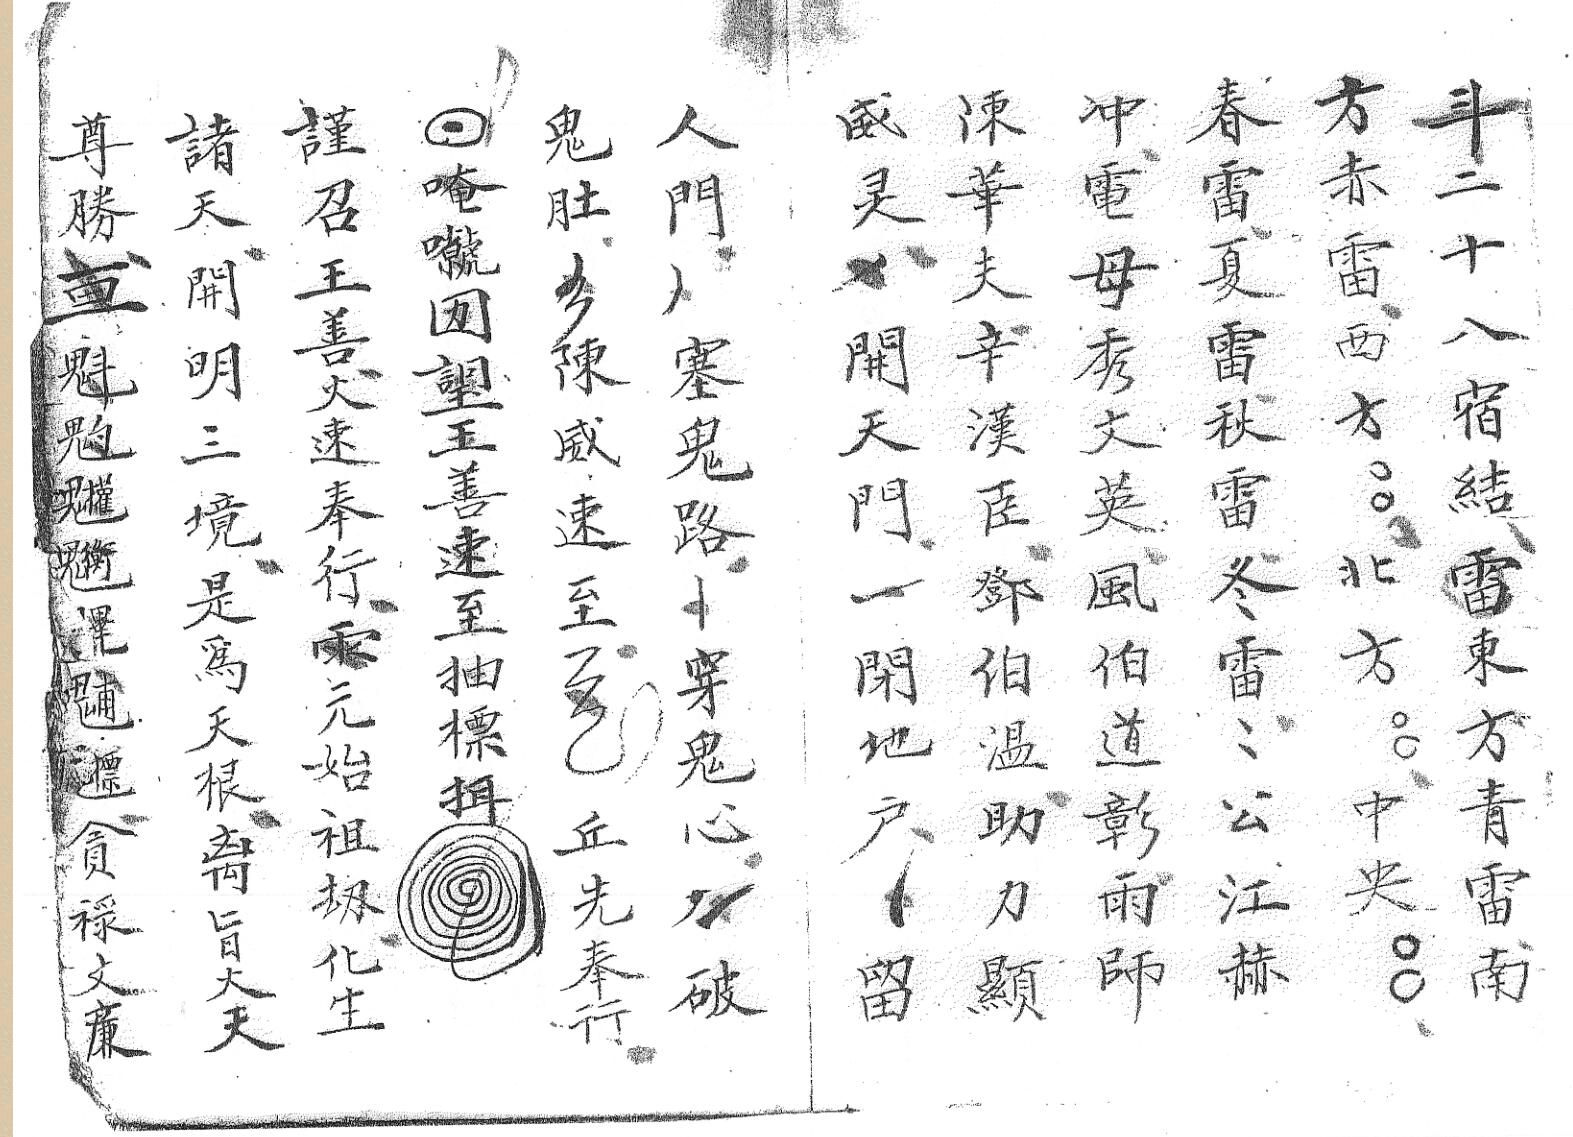 斗二十八宿結雷東方青雷南
方赤雷西方〇〇北方〇〇中央〇〇
春雷夏雷秋雷冬雷〻公江赫
冲電母秀文英風伯道彰雨師
陳華夫辛漢臣鄧伯温助力顯
威灵乂開天門一閉地户丨留
人門丿塞鬼路丨穿鬼心破
鬼肚陳威速至丘先奉行
唵王善速至抽標
謹召王善火速奉行元始祖劫化生
諸天開明三境是爲天根旨大天
尊勝魁貪祿文廉